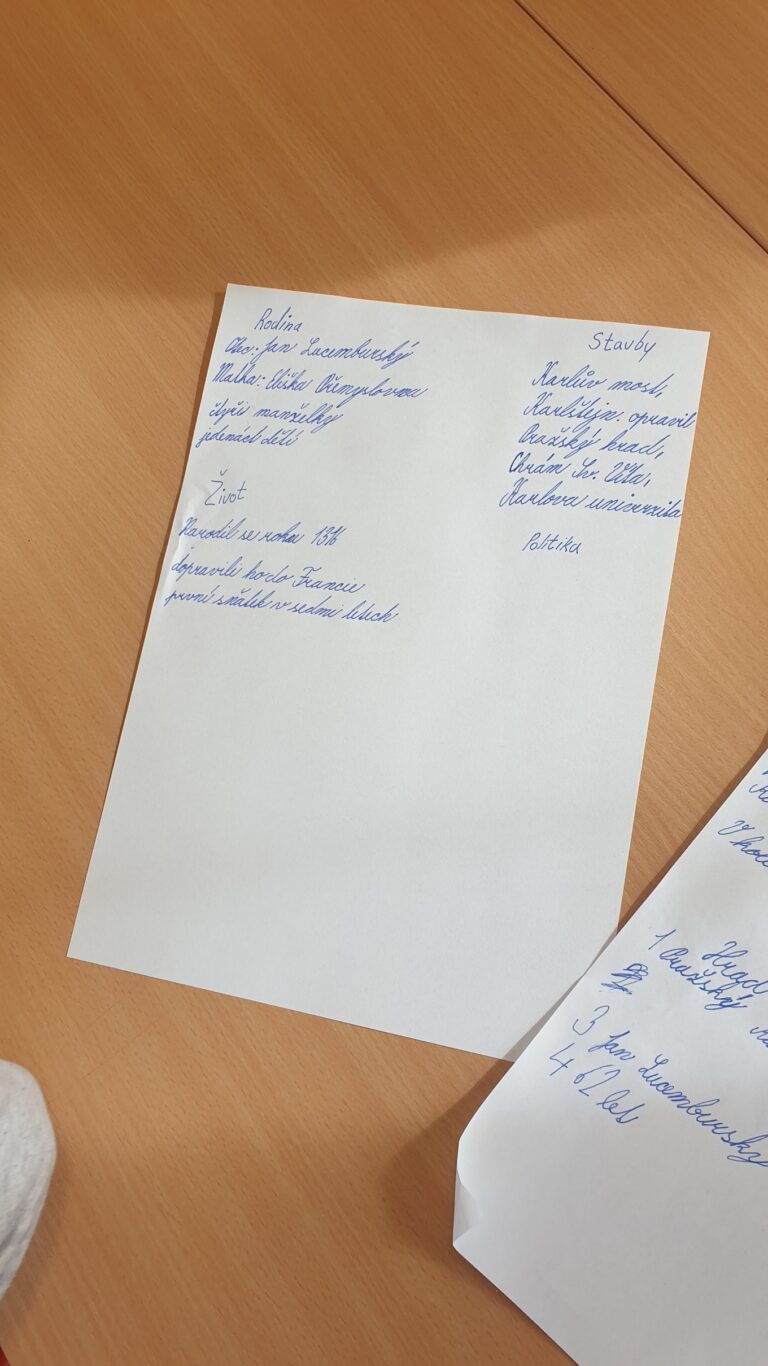 Rodina
Otec: Jan Lucemburský
Matka: Eliška Přemyslovna
čtyři manželky
jedenáct dětí
Život
Narodil se roku 1316
dopravili ho do Francie
první sňatek v sedmi letech
Stavby
Karlův most,
Karlštejn. opravil
Pražský hrad,
Chrám Sv. Víta,
Karlova univerzita
Politika
V
Hrad
1 Pražský
3 Jan Lucemburský
4 62 let